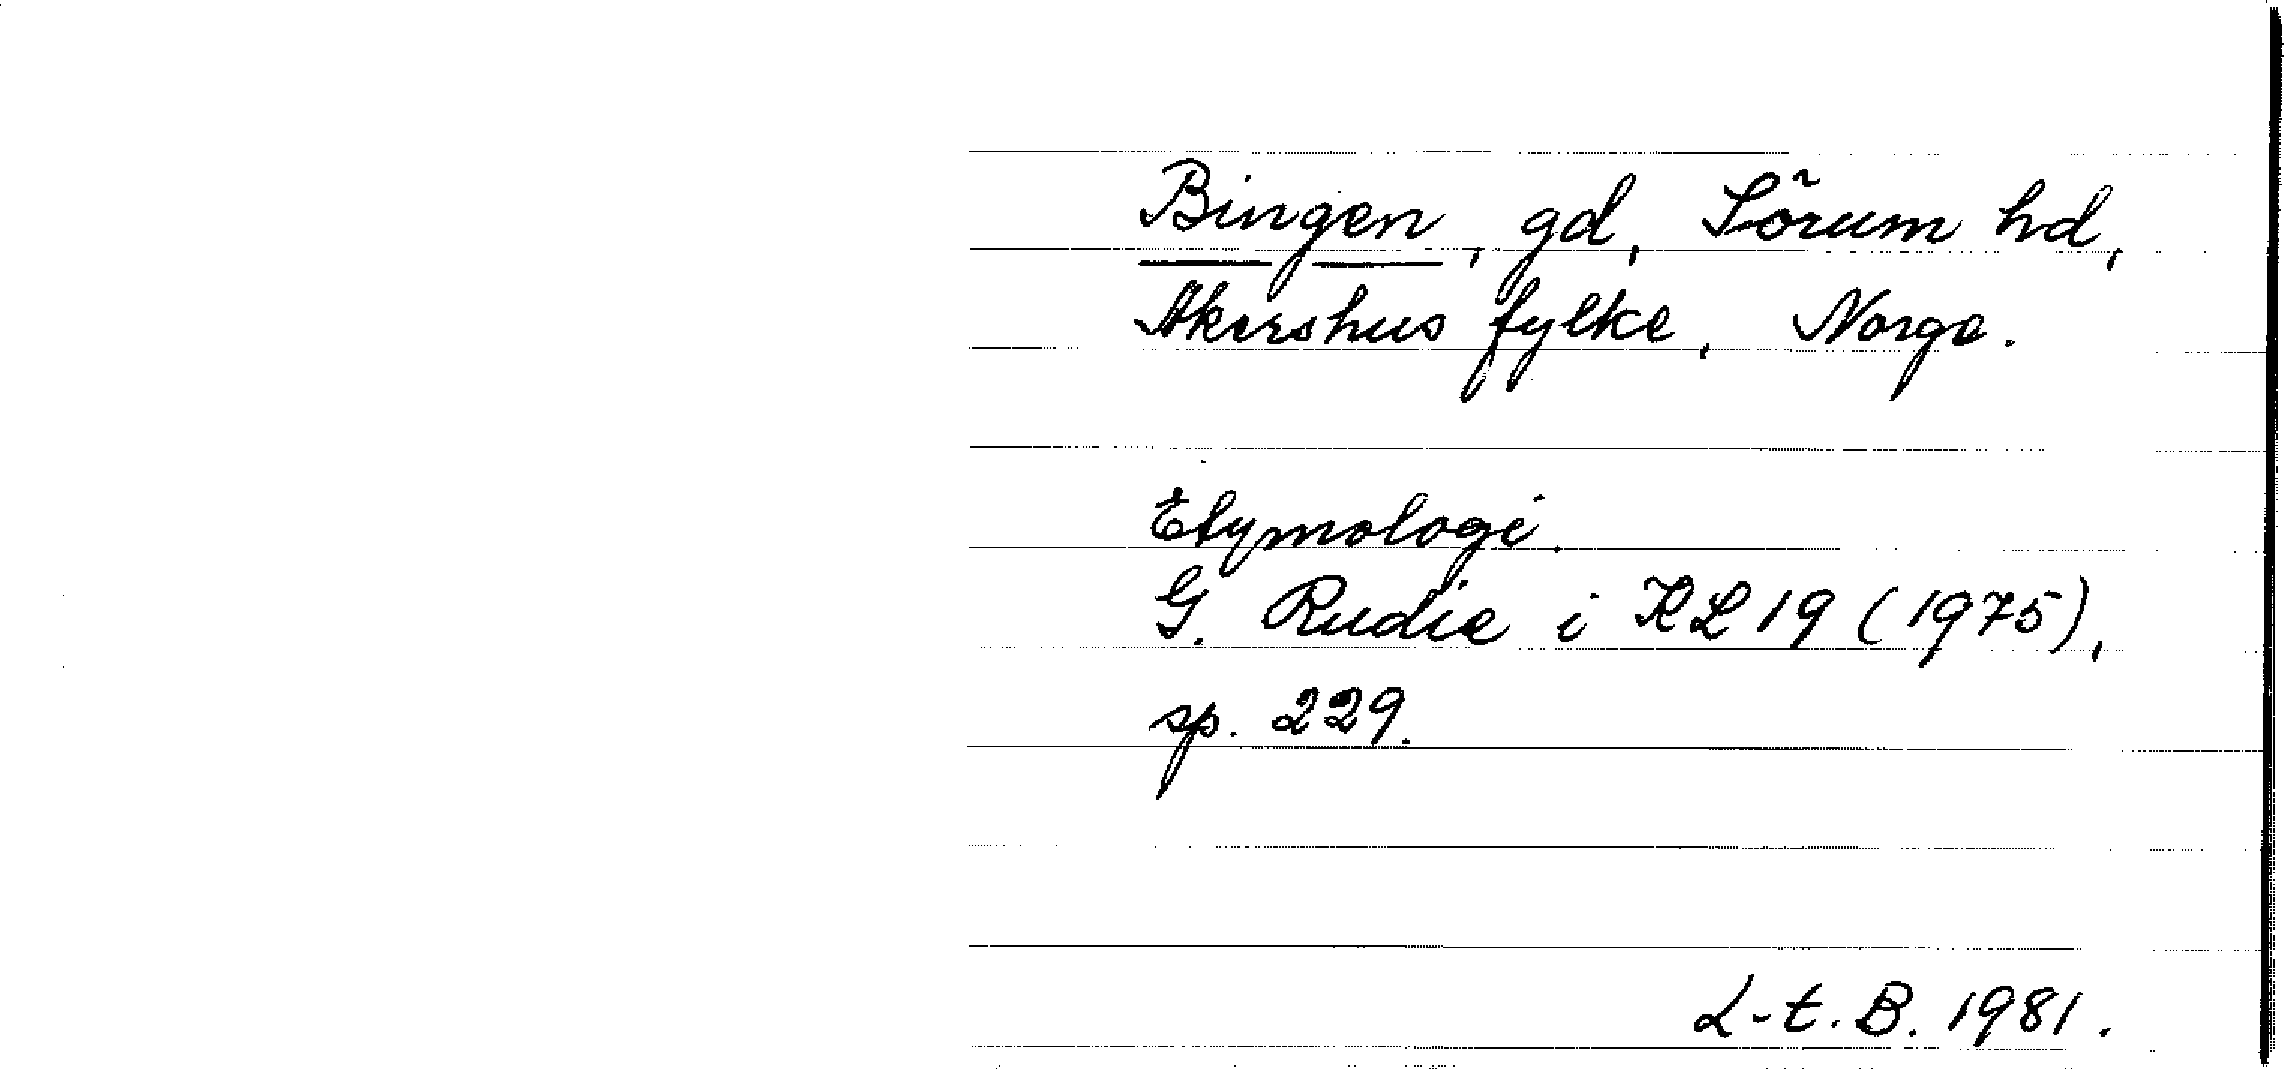 Bingen, gd, Sörum hd,
Akershus fylke, Norge.
Etymologi.
G. Rudie i KL 19 (1975),
sp. 229.
L-t. B. 1981.